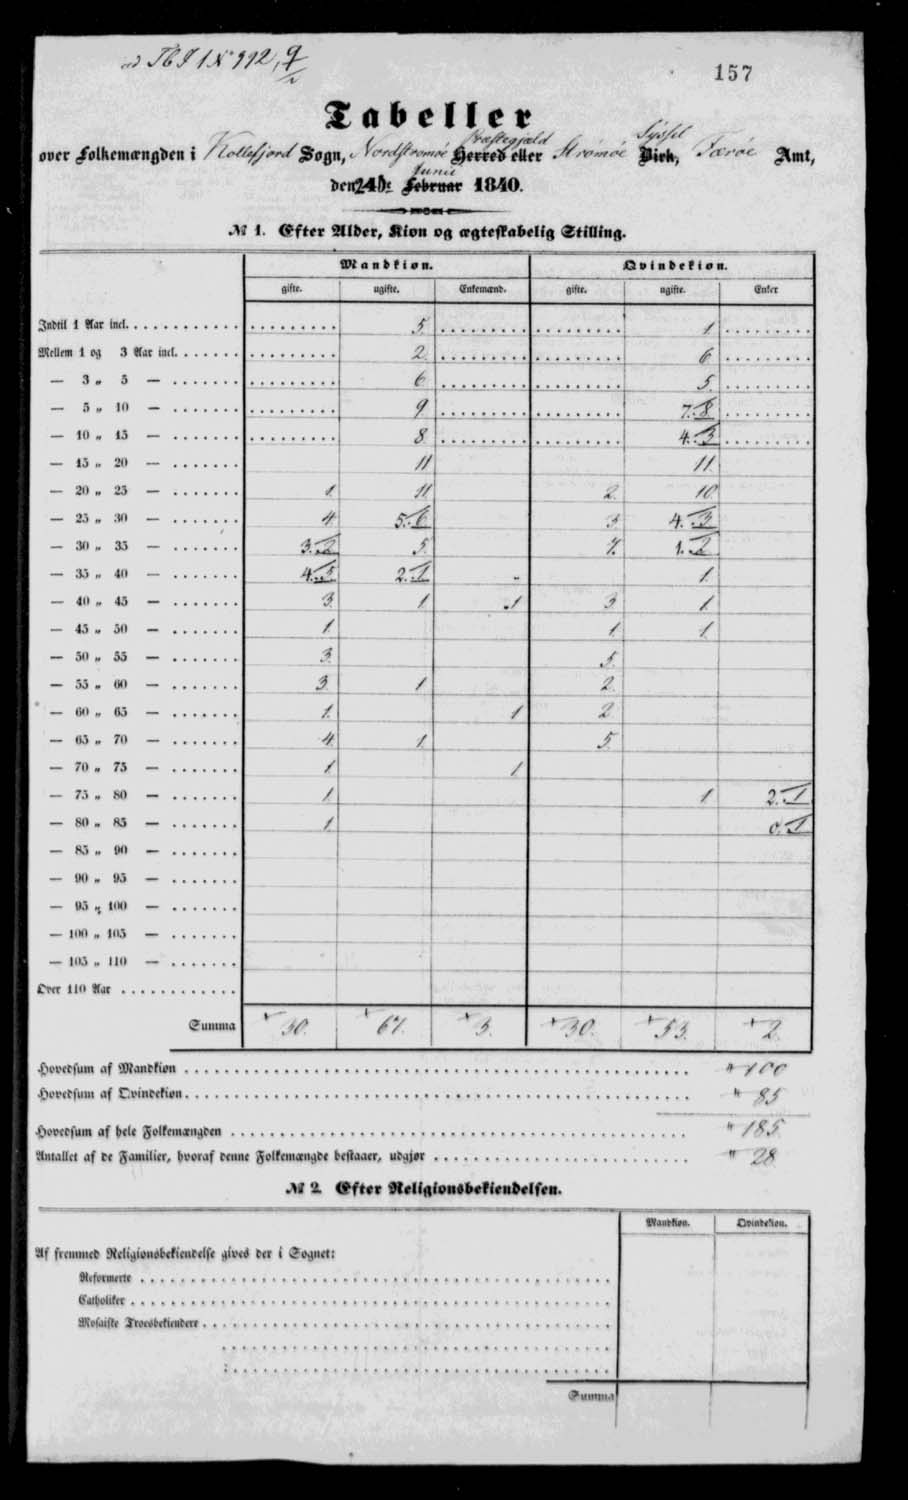 ad TB J 1 № 992, 9/2
157
Tabeller
Præstegjæld Syssel
over Folkemængden i Kollefjord Sogn, Nordstromøe Herred eller Strömöe Birk, Færøe Amt,
Junii
den 24de Februar 1840.
№ 1. Efter Alder, Kion og ægteskabelig Stilling.
Mandkiøn. Qvindekiøn.
gifte. ugifte. Enkemænd. gifte. ugifte. Enker
Indtil 1 Aar incl. 5. 1.
Mellem 1 og 3 Aar incl. 2. 6
— 3 „ 5 — 6 5.
— 5 „ 10 — 9. 7. 8.
— 10 „ 15 — 8. 4. 3
— 15 „ 20 — 11 11.
— 20 „ 25 — 1. 11. 2. 10.
— 25 „ 30 — 4. 5. 6 3. 4. 3
— 30 „ 35 — 3. 2 5. 7. 1. 2
— 35 „ 40 — 4. 5. 2. 1 1.
— 40 „ 45 — 3. 1 1 3 1.
— 45 „ 50 — 1. 1. 1.
— 50 „ 55 — 3. 5.
— 55 „ 60 — 3. 1 2.
— 60 „ 65 — 1. 1 2
— 65 „ 70 — 4. 1. 5.
— 70 „ 75 — 1. 1
— 75 „ 80 — 1. 1 2. 1
— 80 „ 85 — 1. 0. 1
— 85 „ 90 —
— 90 „ 95 —
— 95 „ 100 —
— 100 „ 105 —
— 105 „ 110 —
Over 110 Aar
Summa 30. 67. 3. 30. 53. 2.
Hovedsum af Mandkiøn 100
Hovedsum af Qvindekiøn 85
Hovedsum af hele Folkemængden 185
Antallet af de Familier, hvoraf denne Folkemængde bestaaer, udgjør 28
№ 2. Efter Religionsbekiendelsen.
Mandkiøn. Qvindekiøn.
Af fremmed Religionsbekiendelse gives der i Sognet:
Reformerte
Catholiker
Mosaiske Troesbekiendere
Summa